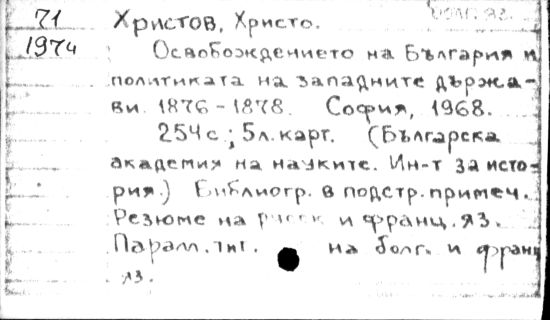 71
1974
болг. яз.
Христов, Христо.
Освобождението на България и
политиката на западните държа-
ви. 1876-1878. София, 1968.
254 с.; 5 л. карт. (Българска
академия на науките. Ин-т за исто-
рия.) Библиогр. в подстр. примеч.
Резюме на русск и франц. яз.
Паралл. тит. на болг. и франц
яз.